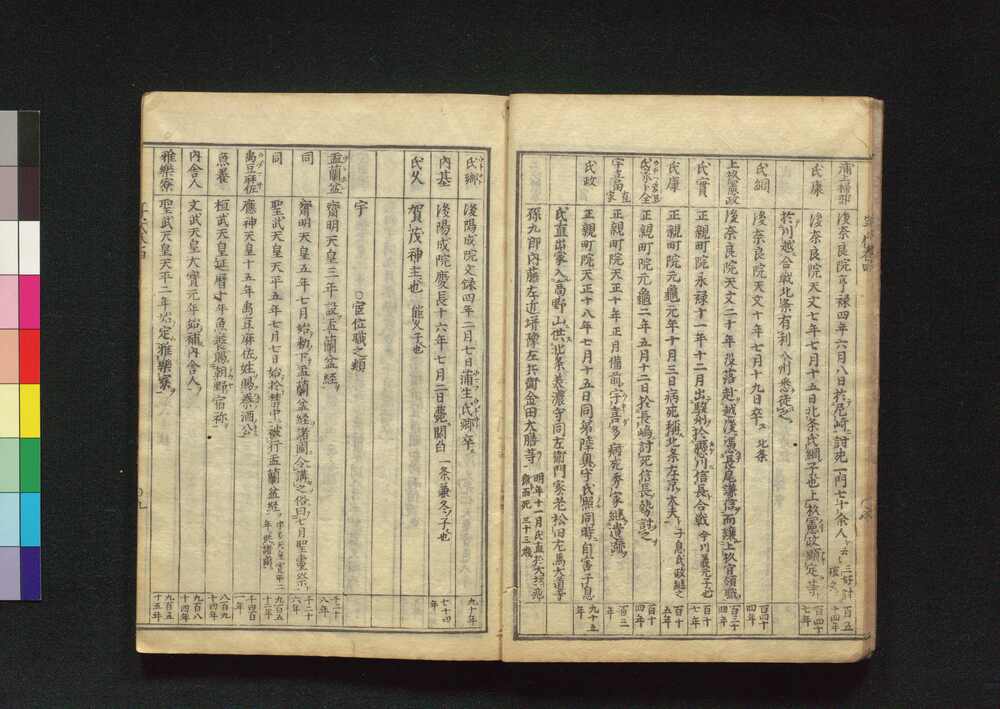 蒲上掃部
後奈良院亨禄四年六月八日於尼崎討死一門七十余人
百五十四年
氏康
後奈良院天文七年七月十五日北条氏綱子也上杦憲政顕定等
於川越合戦北条有利八州悉徒之
百四十七年
氏綱
後奈良院天文十年七月十九日卒 北条
百四十四年
上杦憲政
後奈良院天文二十年没落赴越後憑長尾謙信而譲上杦官領職
百三十四年
氏實
正親町院永禄十一年十二月出駿刕於懸川信長合戦 今川義元子也
百十七年
氏康
正親町院元亀元年十月三日病死称北条左京大夫 子息氏政継之
百十五年
正親町院元亀二年五月十二日於長嶋討死信長勢討之
百十四年
宇喜多直家
正親町院天正十年正月備前宇喜多病死秀家継遺跡
百三年
氏政
正親町院天正十八年七月十五日同弟陸奥守氏照同時自害子息
氏直出家入高野山供北条美濃守同左衛門家老松田左馬大道寺
孫九郎内藤左近堵豫左兵衛金田大膳等 明年十一月氏直於大坂死
歳 三十三
九十五年
氏郷
後陽成院文禄四年二月七日蒲生氏郷卒
九十年
内基
後陽成院慶長十六年七月二日薨関白一条兼冬子也
七十四年
氏久
賀茂神主也 能久子也
宇 ○官位職之類
盂蘭盆
齋明天皇三年設盂蘭盆経
千二十八年
同
齋明天皇五年七月始勅下盂蘭盆経諸國令講之俗曰七月聖霊祭
千二十六年
同
聖武天皇天平五年七月七日始於禁中被行盂蘭盆経
九百五十二年
禹豆麻佐
應神天皇十五年禹豆麻佐姓賜秦酒公
千四百一年
魚養
桓武天皇延暦十年魚養賜朝野宿祢
八百九十四年
内舎人
文武天皇大寳元年始補内舎人
九百八十四年
雅樂寮
聖武天皇天平二年始定雅樂寮
九百五十五年